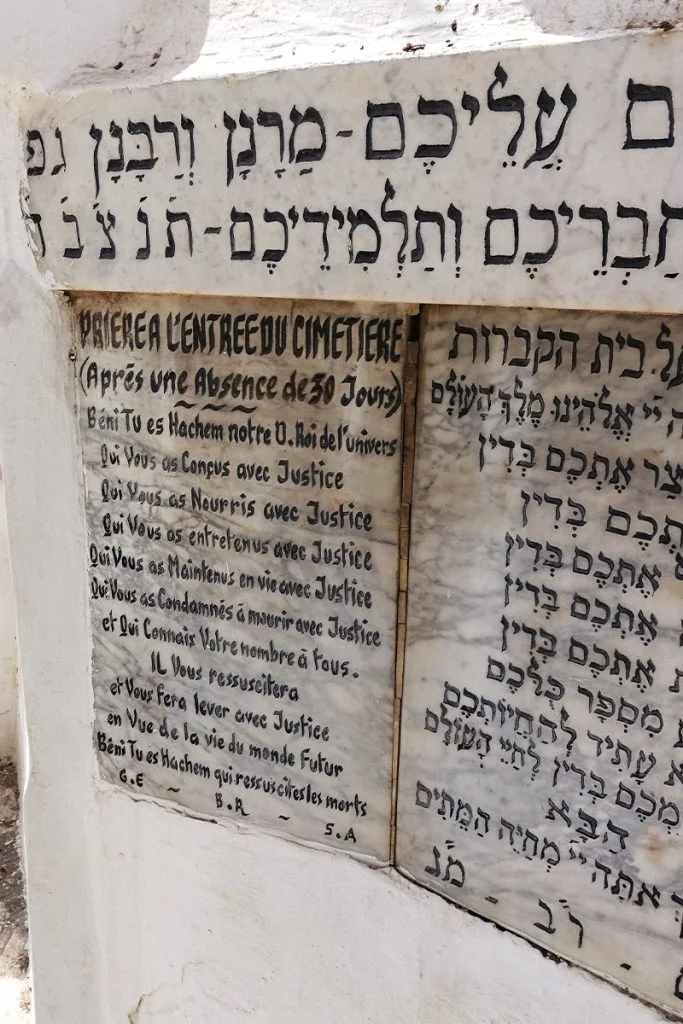 עֲלֵיכֶם-מָרָנָן וְרַבָּנָן
חַבְרֵיכֶם וְתַלְמִידֵיכֶם-ת נ צ ב
PRIERE A L'ENTREE DU CIMETIERE
(Aprés une Absence de 30 Jours)
Béni Tu es Hachem notre D. Roi de l'univers
Qui Vous as Conçus avec Justice
Qui Vous as Nourris avec Justice
Qui Vous as entretenus avec Justice
Qui Vous as Maintenus en vie avec Justice
Qui Vous as Condamnés à mourir avec Justice
et Qui Connais Votre nombre à tous.
IL Vous ressuscitera
et Vous fera lever avec Justice
en Vue de la vie du monde Futur
Béni Tu es Hachem qui ressuscites les morts
G.E - B.R - S.A
בית הקברות
יי אֱלֹהֵינוּ מֶלֶךְ הָעוֹלָם
אֶתְכֶם בְּדִין
בְּדִין
אֶתְכֶם בְּדִין
אֶתְכֶם בְּדִין
אֶתְכֶם בְּדִין
מִסְפַּר כֻּלְּכֶם
עָתִיד לְהַחֲיוֹתְכֶם
בְּדִין לְחַיֵּי הָעוֹלָם
הַבָּא
אַתָּה יי מְחַיֵּה הַמֵּתִים
ר״ב - מ״נ